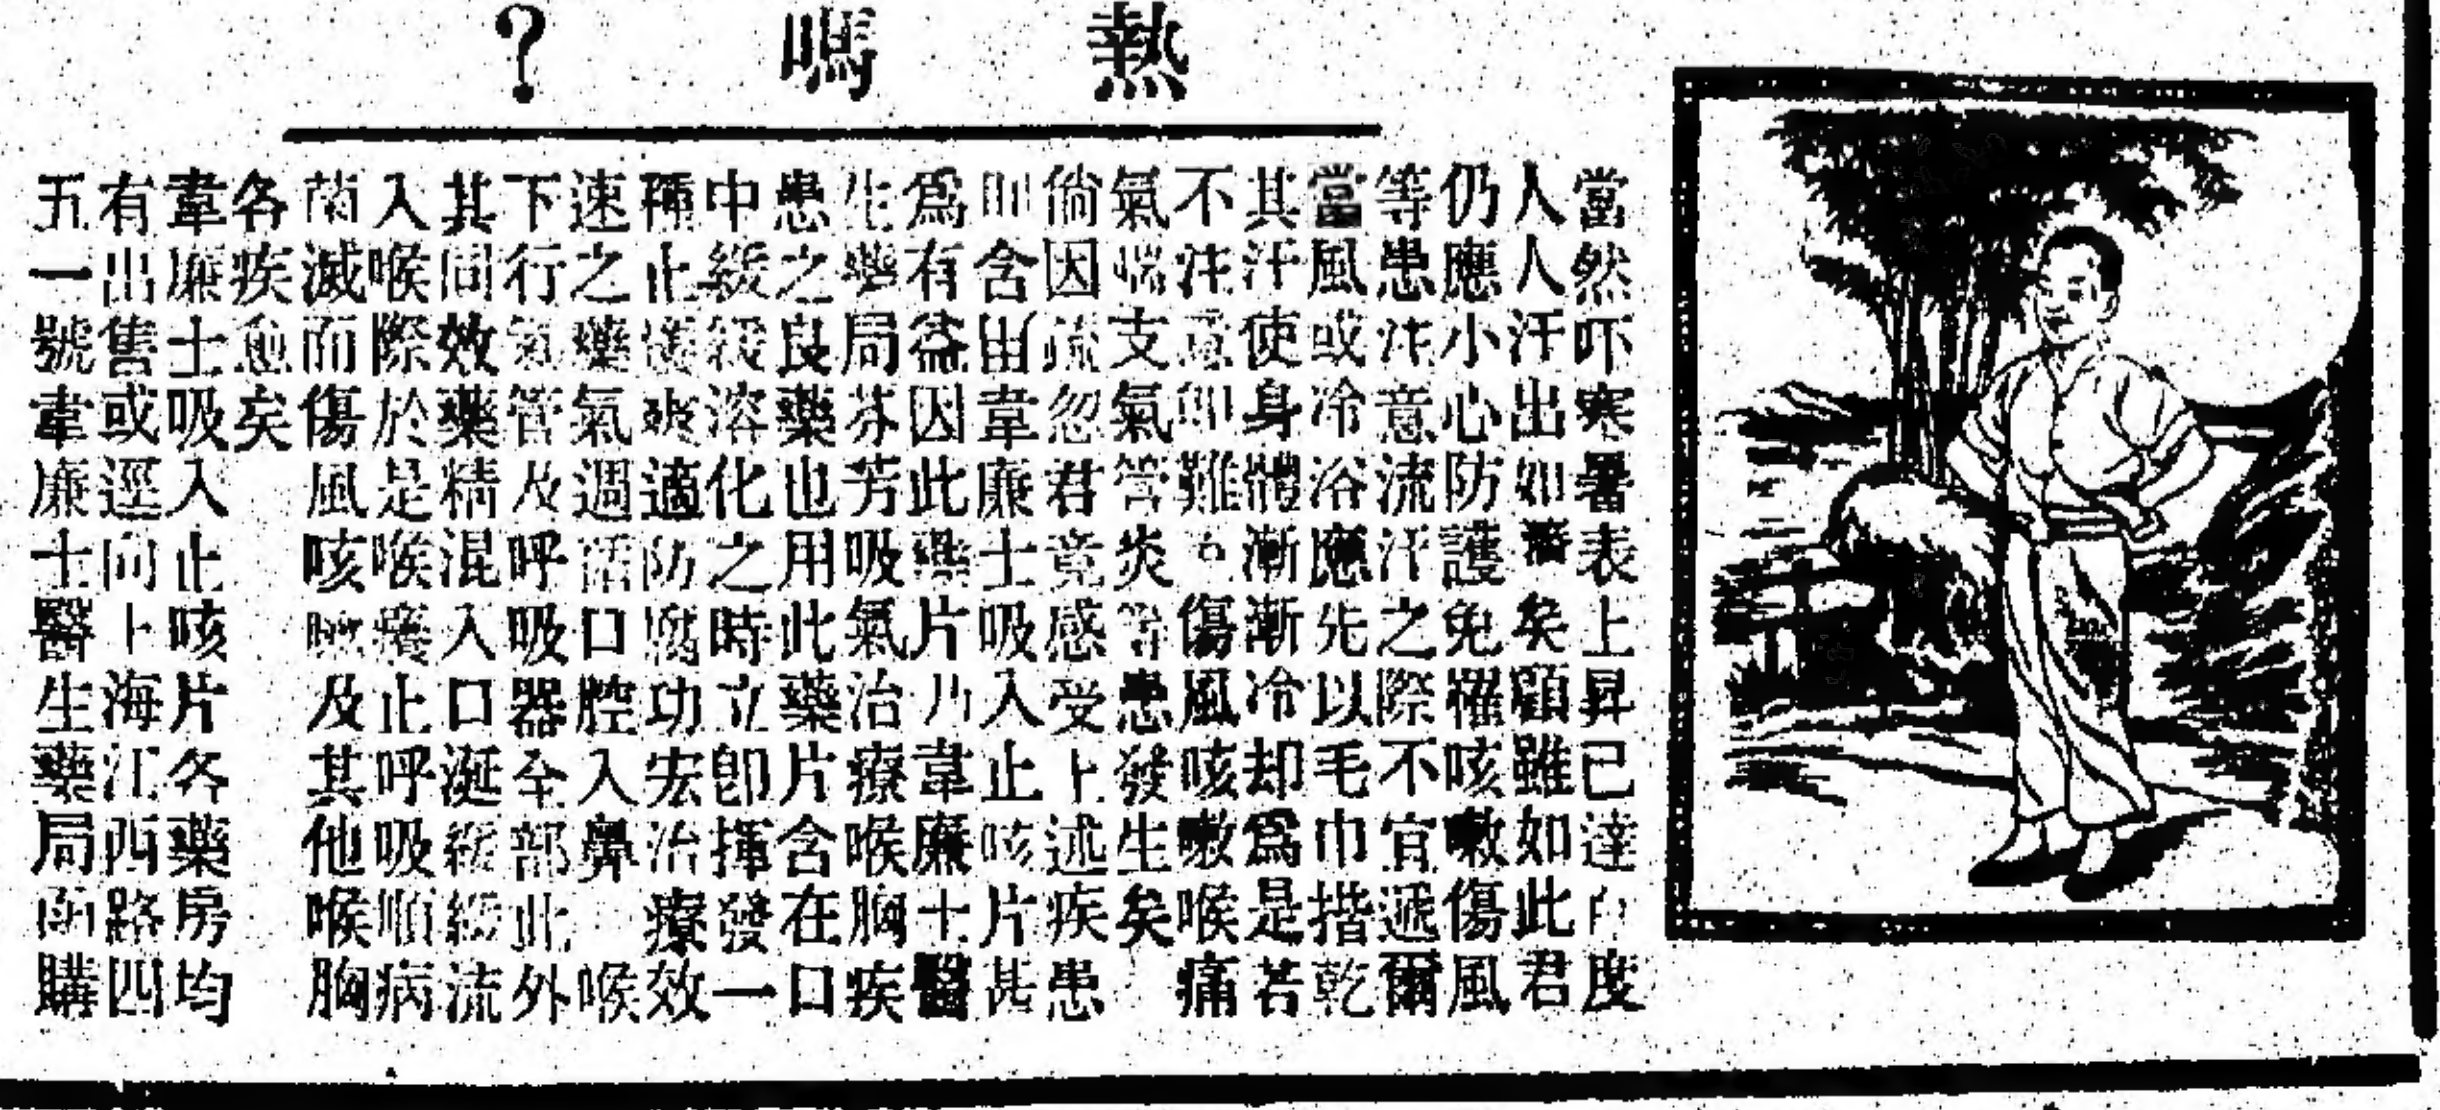 熱嗎？
當然吓寒暑表上昇已達百度
人人汗出如漿矣顧雖如此君
仍應小心防護免罹咳嗽傷風
等患注意流汗之際不宜遞爾
當風或冷浴應先以毛巾揩乾
其汗使身體漸漸冷却爲是若
不注意卽難免傷風咳嗽喉痛
氣喘支氣管炎等患發生矣
倘因疏忽君竟感受上述疾患
則含韋廉士吸入止咳片甚
爲有益因此藥片乃韋廉士醫
生藥局芬芳吸氣治療喉胸疾
患之良藥也用此藥片含在口
中緩緩溶化之時立卽揮發一
種止嗽爽適防腐功宏治療效
速之藥氣週話口腔入鼻喉
下行氣管及呼吸器全部此外
其同效藥精混入口涎緩緩流
入喉際於是喉癢止呼吸順病
菌滅而傷風咳嗽及其他喉胸
各疾愈矣
韋廉士吸入止咳片各藥房均
有出售或逕向上海江西路四
五一號韋廉士醫生藥局函購